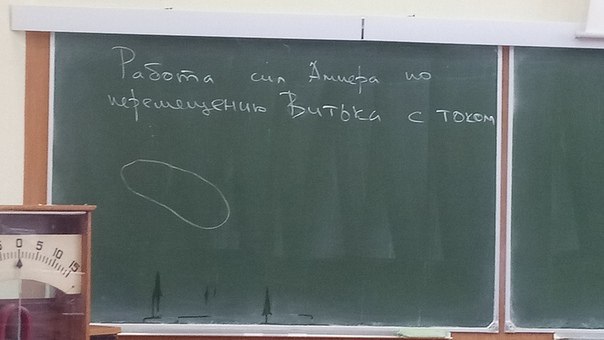 Работа сил Ампера по
перемещению Витька с током
5 0 5 10 15